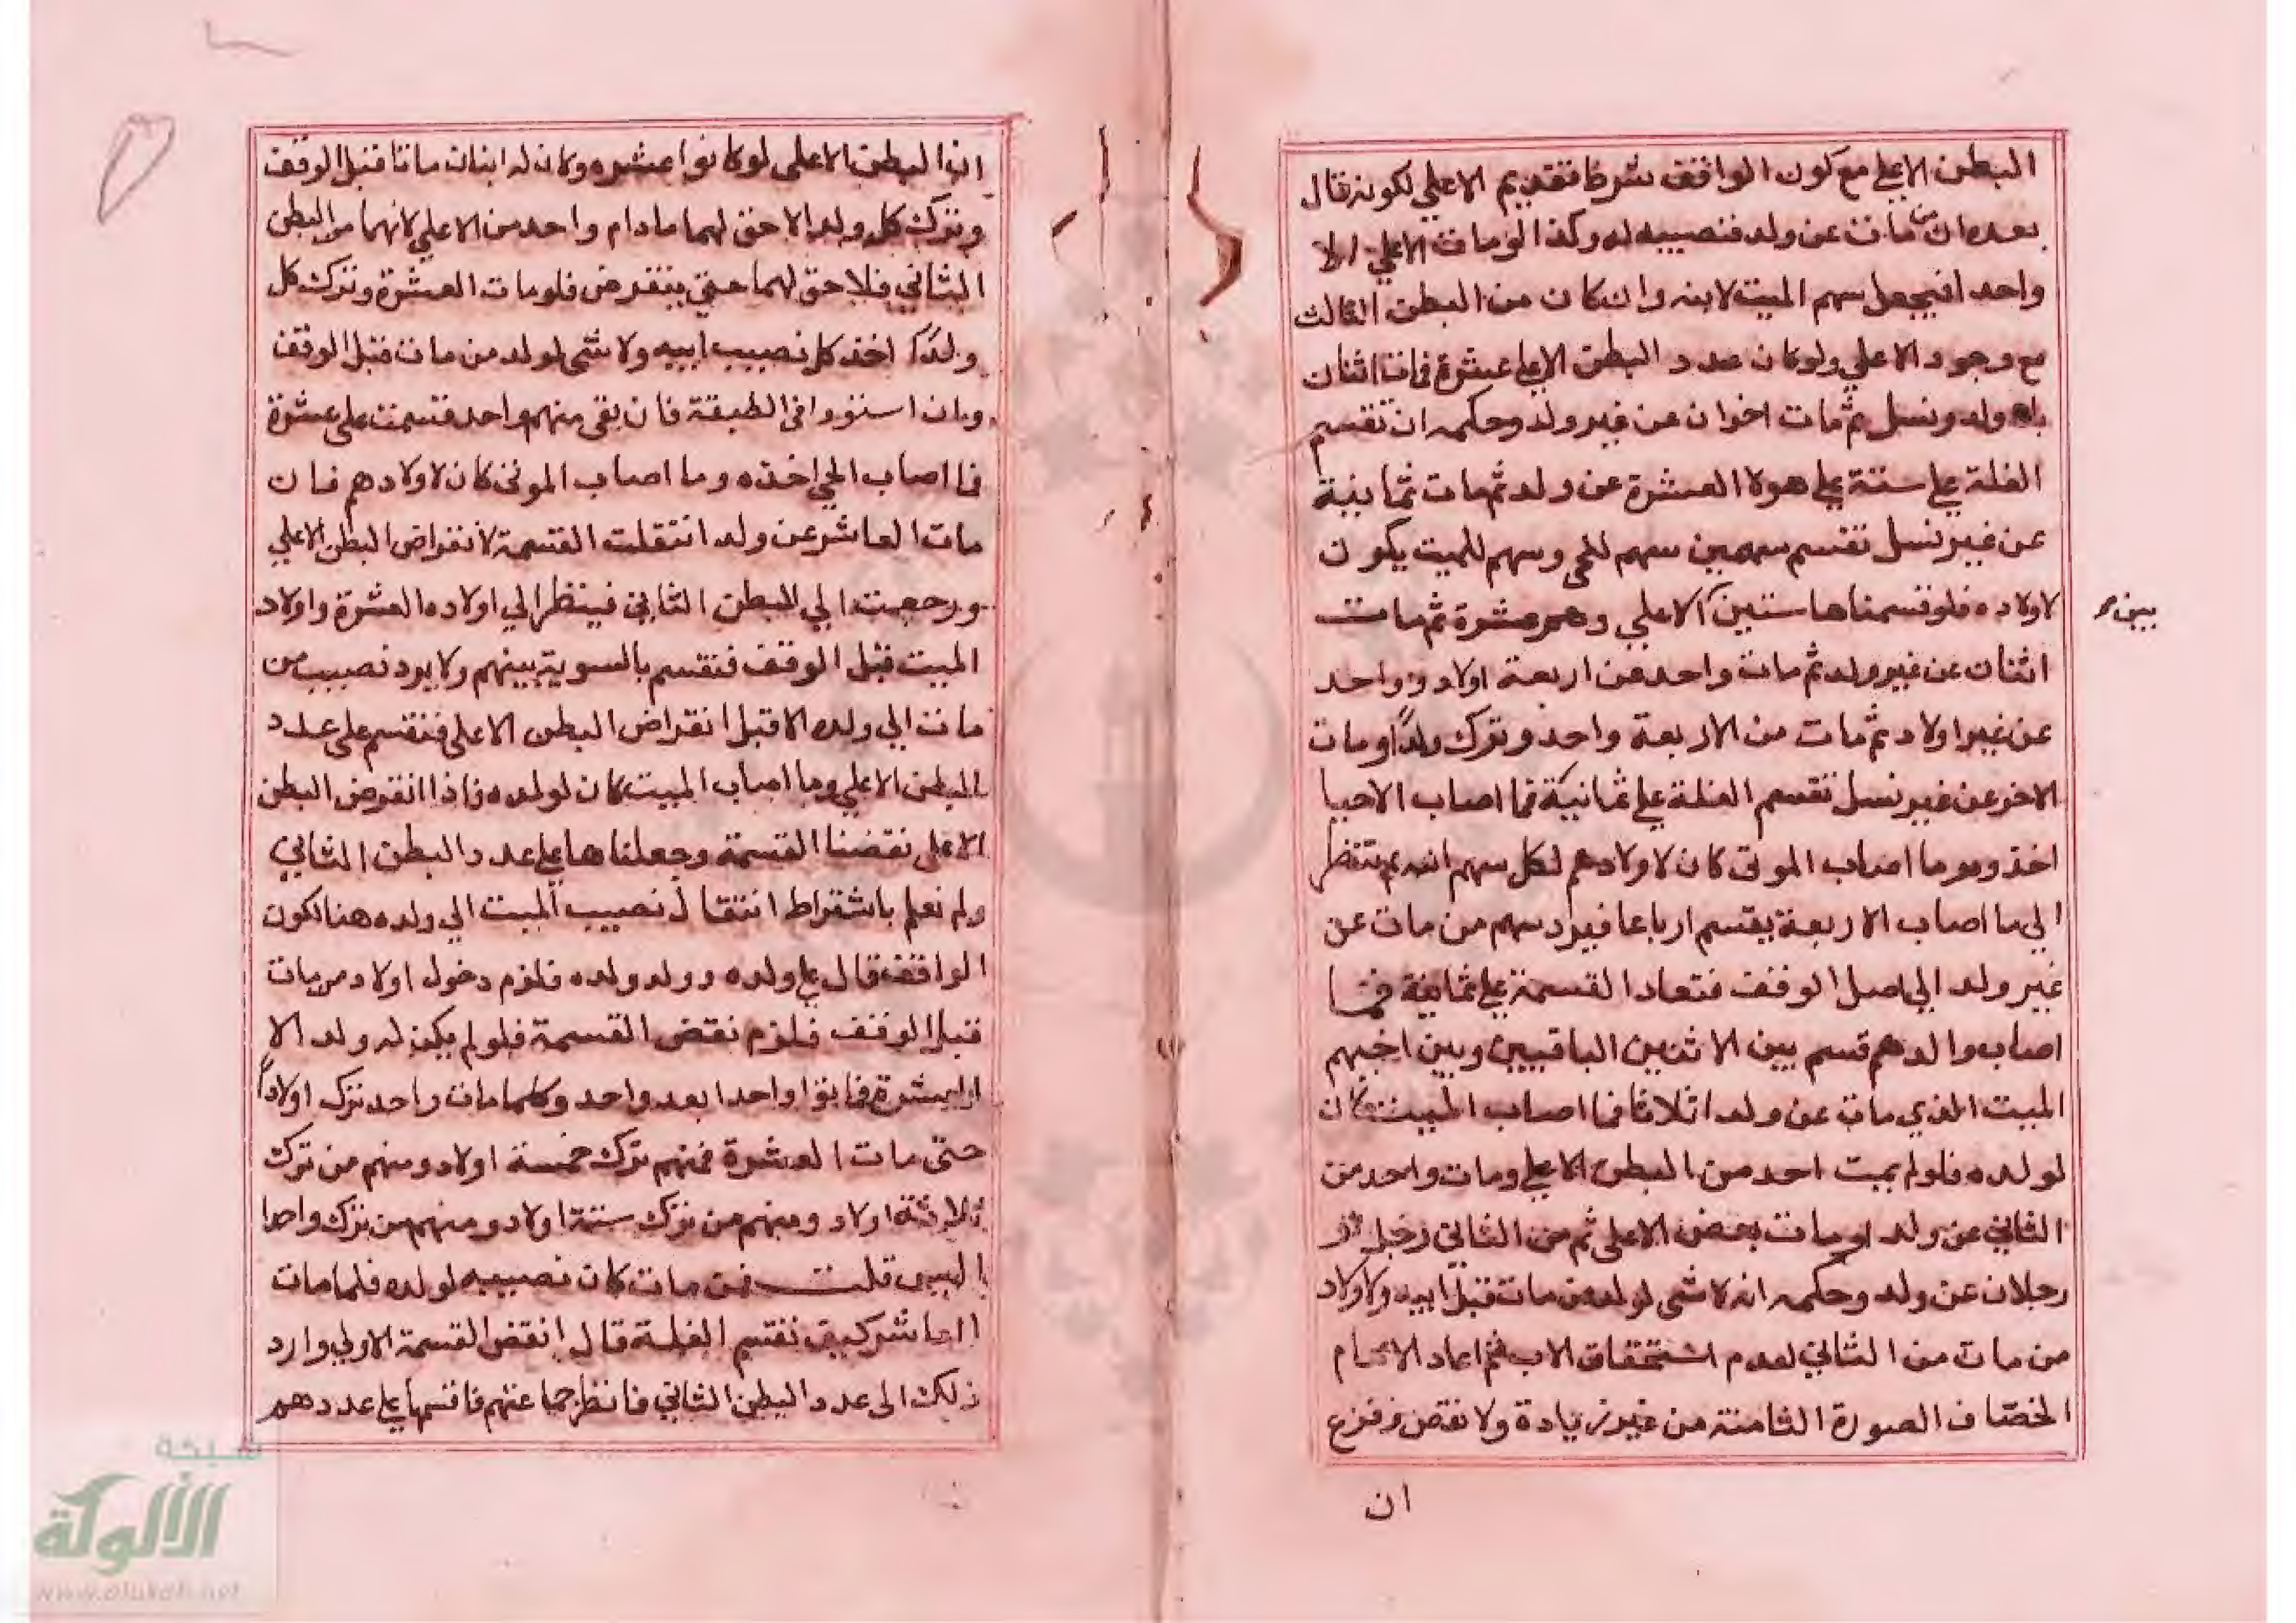 البطن الاعلي مع كون الواقف شرط تقديم الاعلي لكونه قال
بعده ان من مات عن ولد فنصيبه له وكذا لو مات الاعلي الا
واحدا فيجعل سهم الميت لابنه وان كان من البطن الثالث
مع وجود الاعلي ولو كان عدد البطن الاعلي عشرة فمات اثنان
بلا ولد ونسل ثم مات اخوان عن غير ولد وحكمه ان تقسم
الغلة علي ستة علي هولا العشرة عن ولد ثم مات ثمانية
عن غير نسل تقسم سهمين سهم للحي وسهم للميت يكون
لاولاده فلو قسمناها سنين الاعلي وهم عشرة ثم مات
بين
اثنان عن غير ولد ثم مات واحد عن اربعة اولاد وواحد
عن غير اولاد ثم مات من الاربعة واحد وترك ولدا ومات
الاخر عن غير نسل تقسم الغلة علي ثمانية فما اصاب الاحيا
اخذوه وما اصاب الموتى كان لاولادهم لكل سهم ابيه ثم تنظر
الي ما اصاب الاربعة يقسم ارباعا فيرد سهم من مات عن
غير ولد الي اصل الوقف فتعاد القسمة علي ثمانية فما
اصاب والدهم قسم بين الاثنين الباقيين وبين اخيهم
الميت الذي مات عن ولد اثلاثا فما اصاب الميت كان
لولده فلو لم يمت احد من البطن الاعلي ومات واحد من
الثاني عن ولد او مات بعض الاعلى ثم من الثاني رجل او
رجلان عن ولد وحكمه انه لا شي لولد من مات قبل ابيه ولا ولاد
من مات من الثاني لعدم استحقاق الاب ثم اعاد الامام
الخصاف الصورة الثامنة من غير زيادة ولا نقص وفرع
ان
ان البطن الاعلى لو كانوا عشره وكان له ابنان ماتا قبل الوقف
وترك كل ولدا لا حق لهما مادام واحد من الاعلي لانهما من البطن
الثاني فلا حق لهما حتي ينقرض فلو مات العشرة وترك كل
ولدا اخذ كل نصيب ابيه ولا شي لولد من مات قبل الوقف
وان استووا في الطبقة فان بقي منهم واحد قسمت على عشرة
فما اصاب الحي اخذه وما اصاب الموتى كان لاولادهم فان
مات العاشر عن ولد انتقلت القسمة لانقراض البطن الاعلي
ورجعت الي البطن الثاني فينظر الي اولاد العشرة واولاد
الميت قبل الوقف فتقسم بالسوية بينهم ولا يرد نصيب من
مات الي ولده الا قبل انقراض البطن الاعلي فتقسم على عدد
البطن الاعلي وما اصاب الميت كان لولده فاذا انقرض البطن
الاعلي نقضنا القسمة وجعلناها علي عدد البطن الثاني
ولم نعلم باشتراط انتقال نصيب الميت الي ولده هنا لكون
الواقف قال علي ولده وولد ولده فلزم دخول اولاد من مات
قبل الوقف فلزم نقض القسمة فلو لم يكن له ولد الا
العشرة فماتوا واحدا بعد واحد وكلما مات واحد ترك اولادا
حتى مات العشرة فمنهم ترك خمسة اولاد ومنهم من ترك
ثلاثة اولاد ومنهم من ترك ستة اولاد ومنهم من ترك واحدا
اليس قلت فمن مات كان نصيبه لولده فلما مات
العاشر كيف تقسم الغلة قال انقض القسمة الاولي وارد
ذلك الى عدد البطن الثاني فانظر جماعتهم فاقسمها علي عددهم
شبكة
الألوكة
www.alukah.net